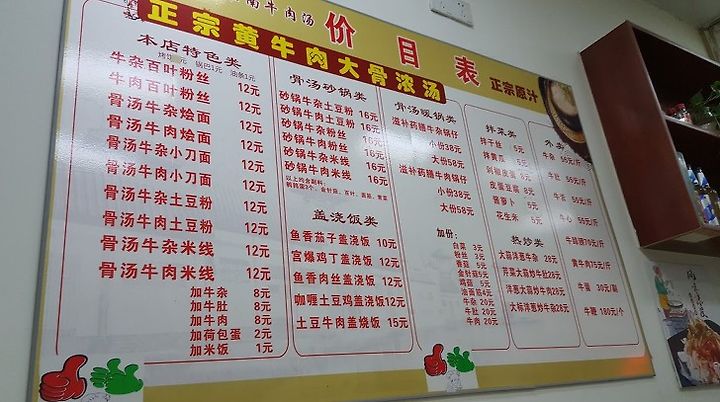 南牛肉汤
价目表
正宗黄牛肉大骨浓汤
正宗原汁
本店特色类
锅巴1元 油条1元
牛杂百叶粉丝 12元
牛肉百叶粉丝 12元
骨汤牛杂烩面 12元
骨汤牛肉烩面 12元
骨汤牛杂小刀面 12元
骨汤牛肉小刀面 12元
骨汤牛杂土豆粉 12元
骨汤牛肉土豆粉 12元
骨汤牛杂米线 12元
骨汤牛肉米线 12元
加牛杂 8元
加牛肚 8元
加牛肉 8元
加荷包蛋 2元
加米饭 1元
骨汤砂锅类
砂锅牛杂土豆粉 16元
砂锅牛肉土豆粉 16元
砂锅牛杂粉丝 16元
砂锅牛肉粉丝 16元
砂锅牛杂米线 16元
砂锅牛肉米线 16元
以上均含配料:
鹌鹑蛋3个、金针菇、百叶、面筋、青菜
盖浇饭类
鱼香茄子盖浇饭 10元
宫爆鸡丁盖浇饭 12元
鱼香肉丝盖浇饭 12元
咖喱土豆鸡盖浇饭 12元
土豆牛肉盖烧饭 15元
骨汤暖锅类
滋补药膳牛杂锅仔
小份38元
大份58元
滋补药膳牛肉锅仔
小份38元
大份58元
加份:
白菜 3元
粉丝 3元
香菇 5元
金针菇5元
鸡菇 5元
油面筋4元
牛杂 20元
牛肚 20元
牛肉 20元
拌菜类
拌干丝 5元
拌黄瓜 5元
剁椒皮蛋 8元
皮蛋豆腐 8元
酱萝卜 5元
花生米 5元
热炒类
大蒜洋葱炒牛杂28元
芹菜大蒜炒牛肚28元
洋葱大蒜炒牛肉28元
大标洋葱炒牛杂28元
外卖
牛杂 55元/斤
牛肚 55元/斤
牛舌 55元/斤
牛心 55元/斤
牛腱70元/斤
黄牛肉75元/斤
牛蛋 30元/朝
牛鞭 180元/个